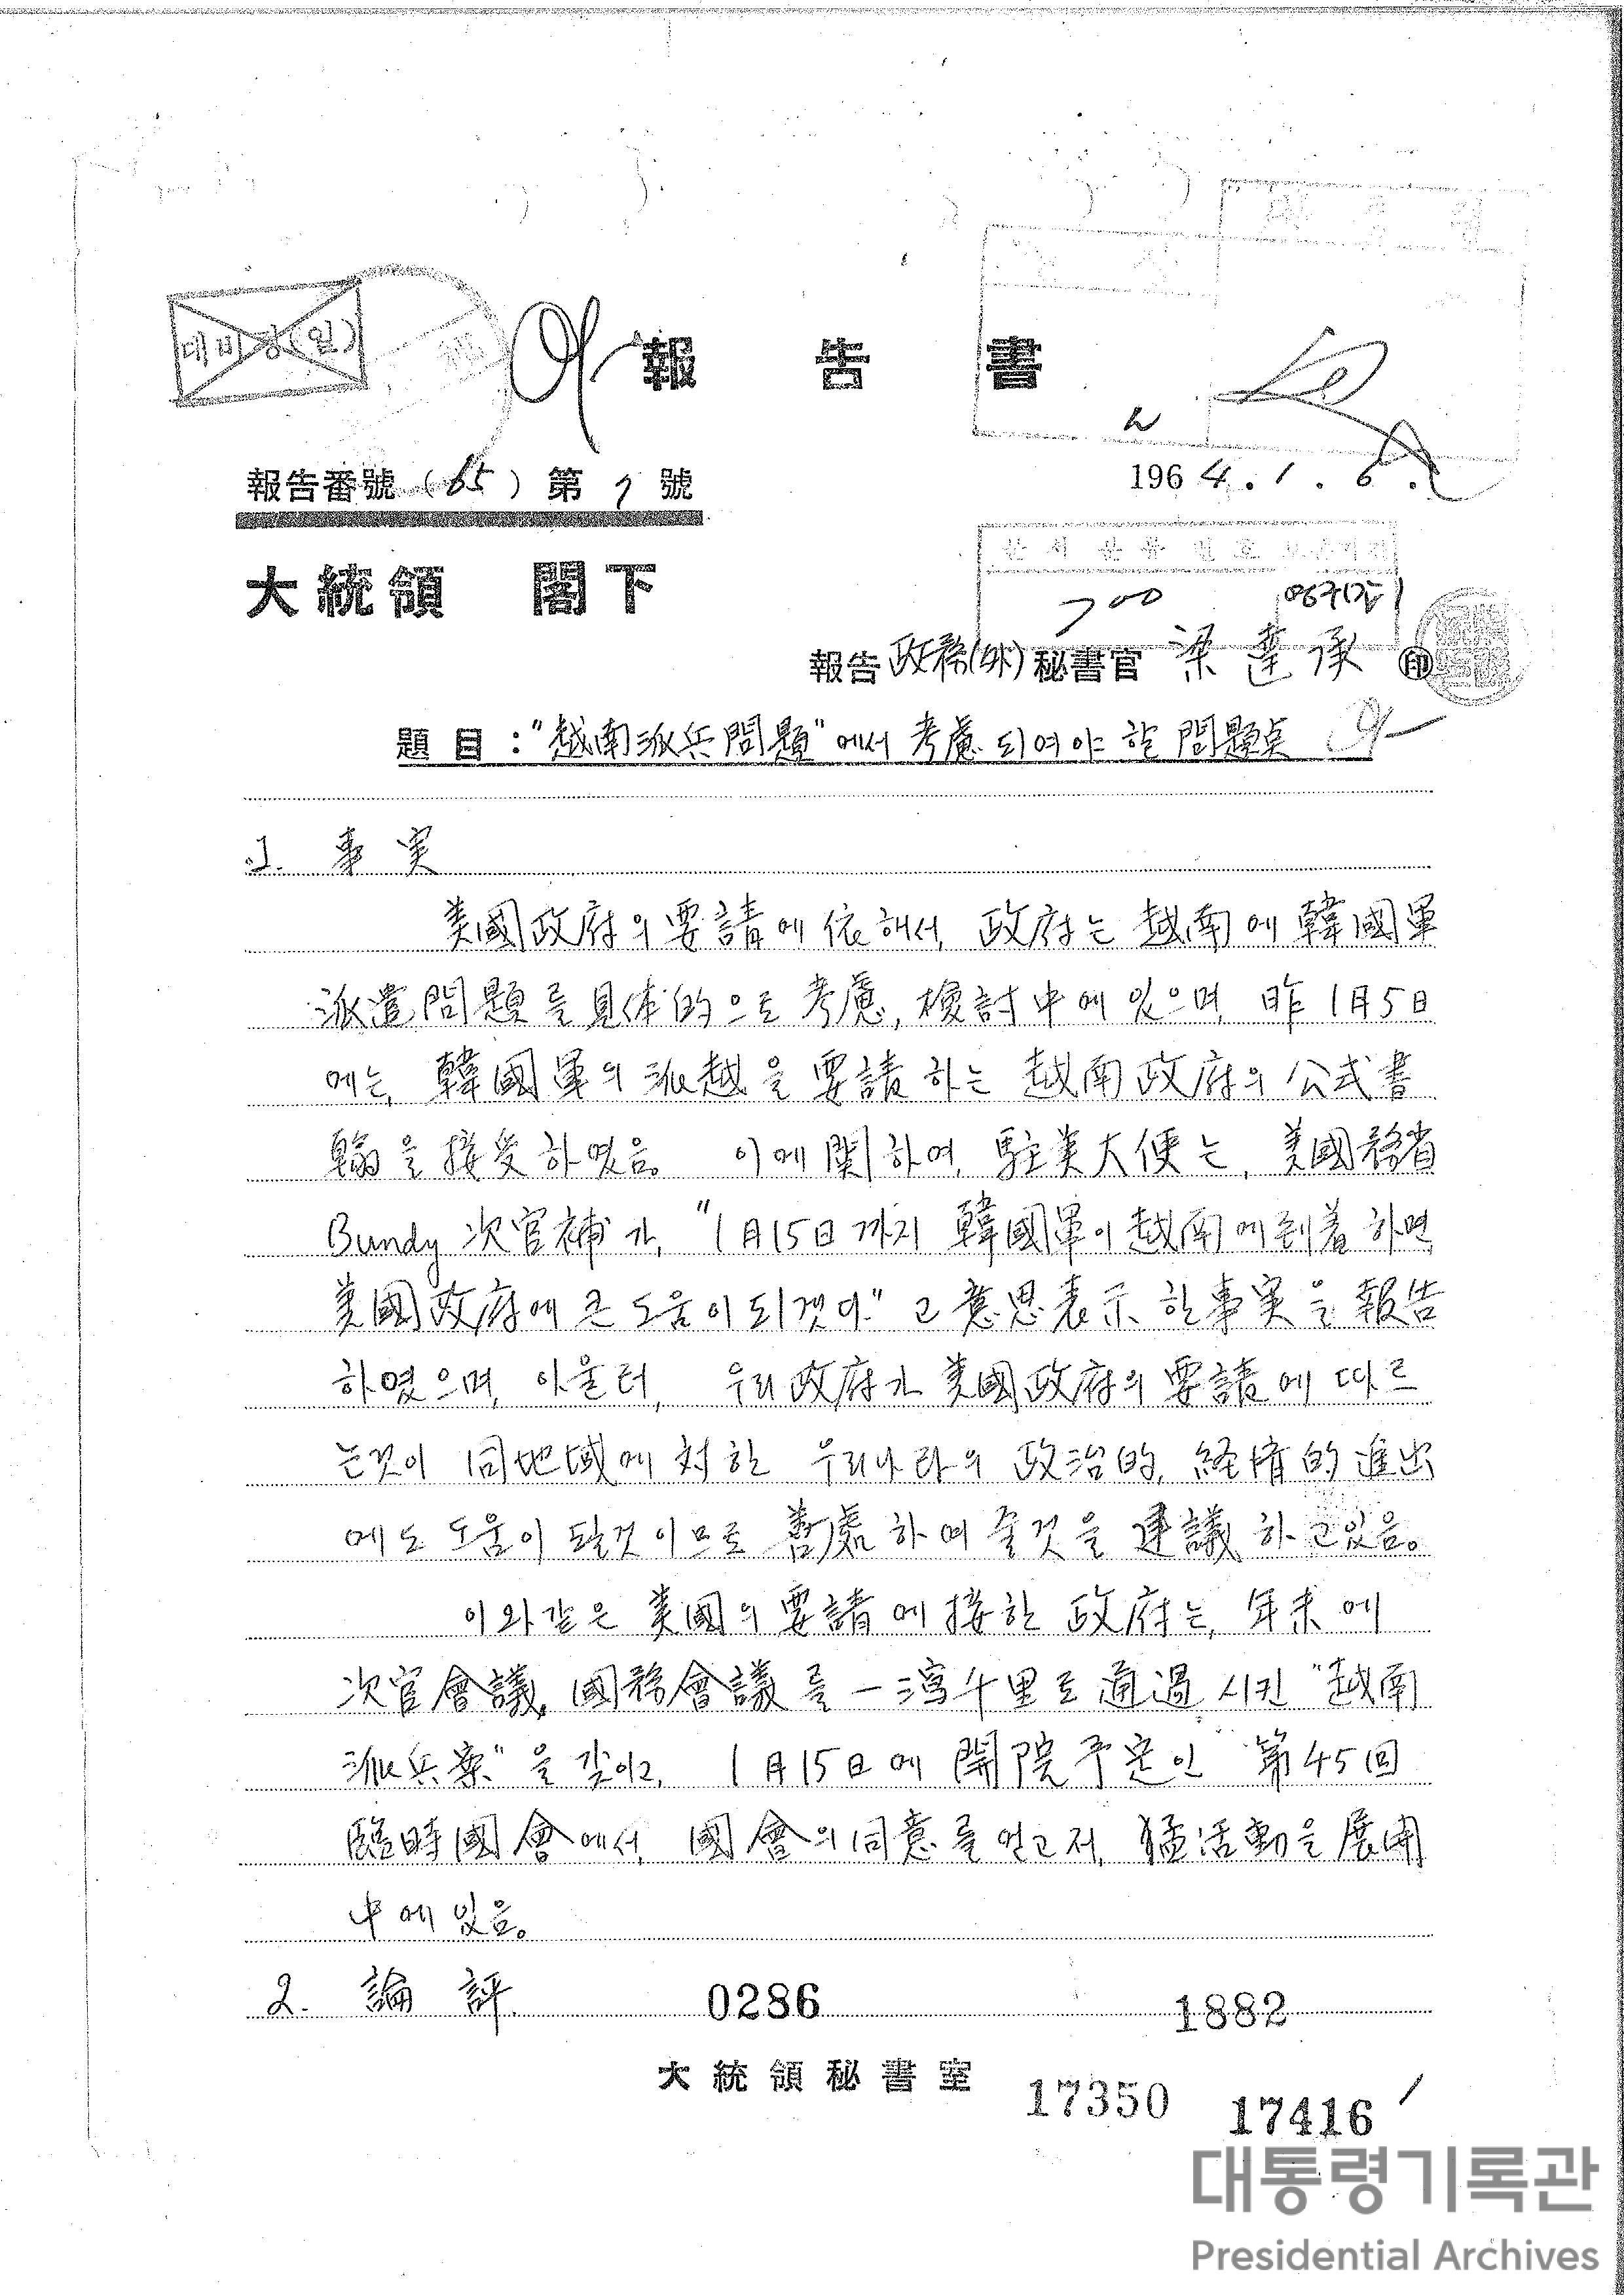 대비망(일)
報告書
報告番號 (65) 第 7 號
1964.1.6.
大統領 閣下
문서분류번호 보존기간
700 영구(갑)
報告 政務(外) 秘書官 梁達承 印
題目 : "越南派兵問題"에서 考慮되여야 할 問題点
1. 事実
美國政府의 要請에 依해서, 政府는 越南에 韓國軍
派遣問題를 具体的으로 考慮, 檢討中에 있으며, 昨 1月5日
에는, 韓國軍의 派越을 要請하는 越南政府의 公式書
翰을 接受하였음. 이에 関하여, 駐美大使는, 美國務省
Bundy 次官補가, "1月15日까지 韓國軍이 越南에 到着하면,
美國政府에 큰 도움이 되겠다."고 意思表示한 事実을 報告
하였으며, 아울러, 우리政府가 美國政府의 要請에 따르
는것이 同地域에 対한 우리나라의 政治的, 経済的 進出
에도 도움이 될것이므로 善處하여 줄것을 建議하고있음.
이와같은 美國의 要請에 接한 政府는, 年末에
次官會議, 國務會議를 一瀉千里로 通過시킨 "越南
派兵案"을 갖이고, 1月15日에 開院予定인 第45回
臨時國會에서, 國會의 同意를 얻고저, 猛活動을 展開
中에 있음.
2. 論評.
0286
1882
大統領秘書室
17350
17416
대통령기록관
Presidential Archives